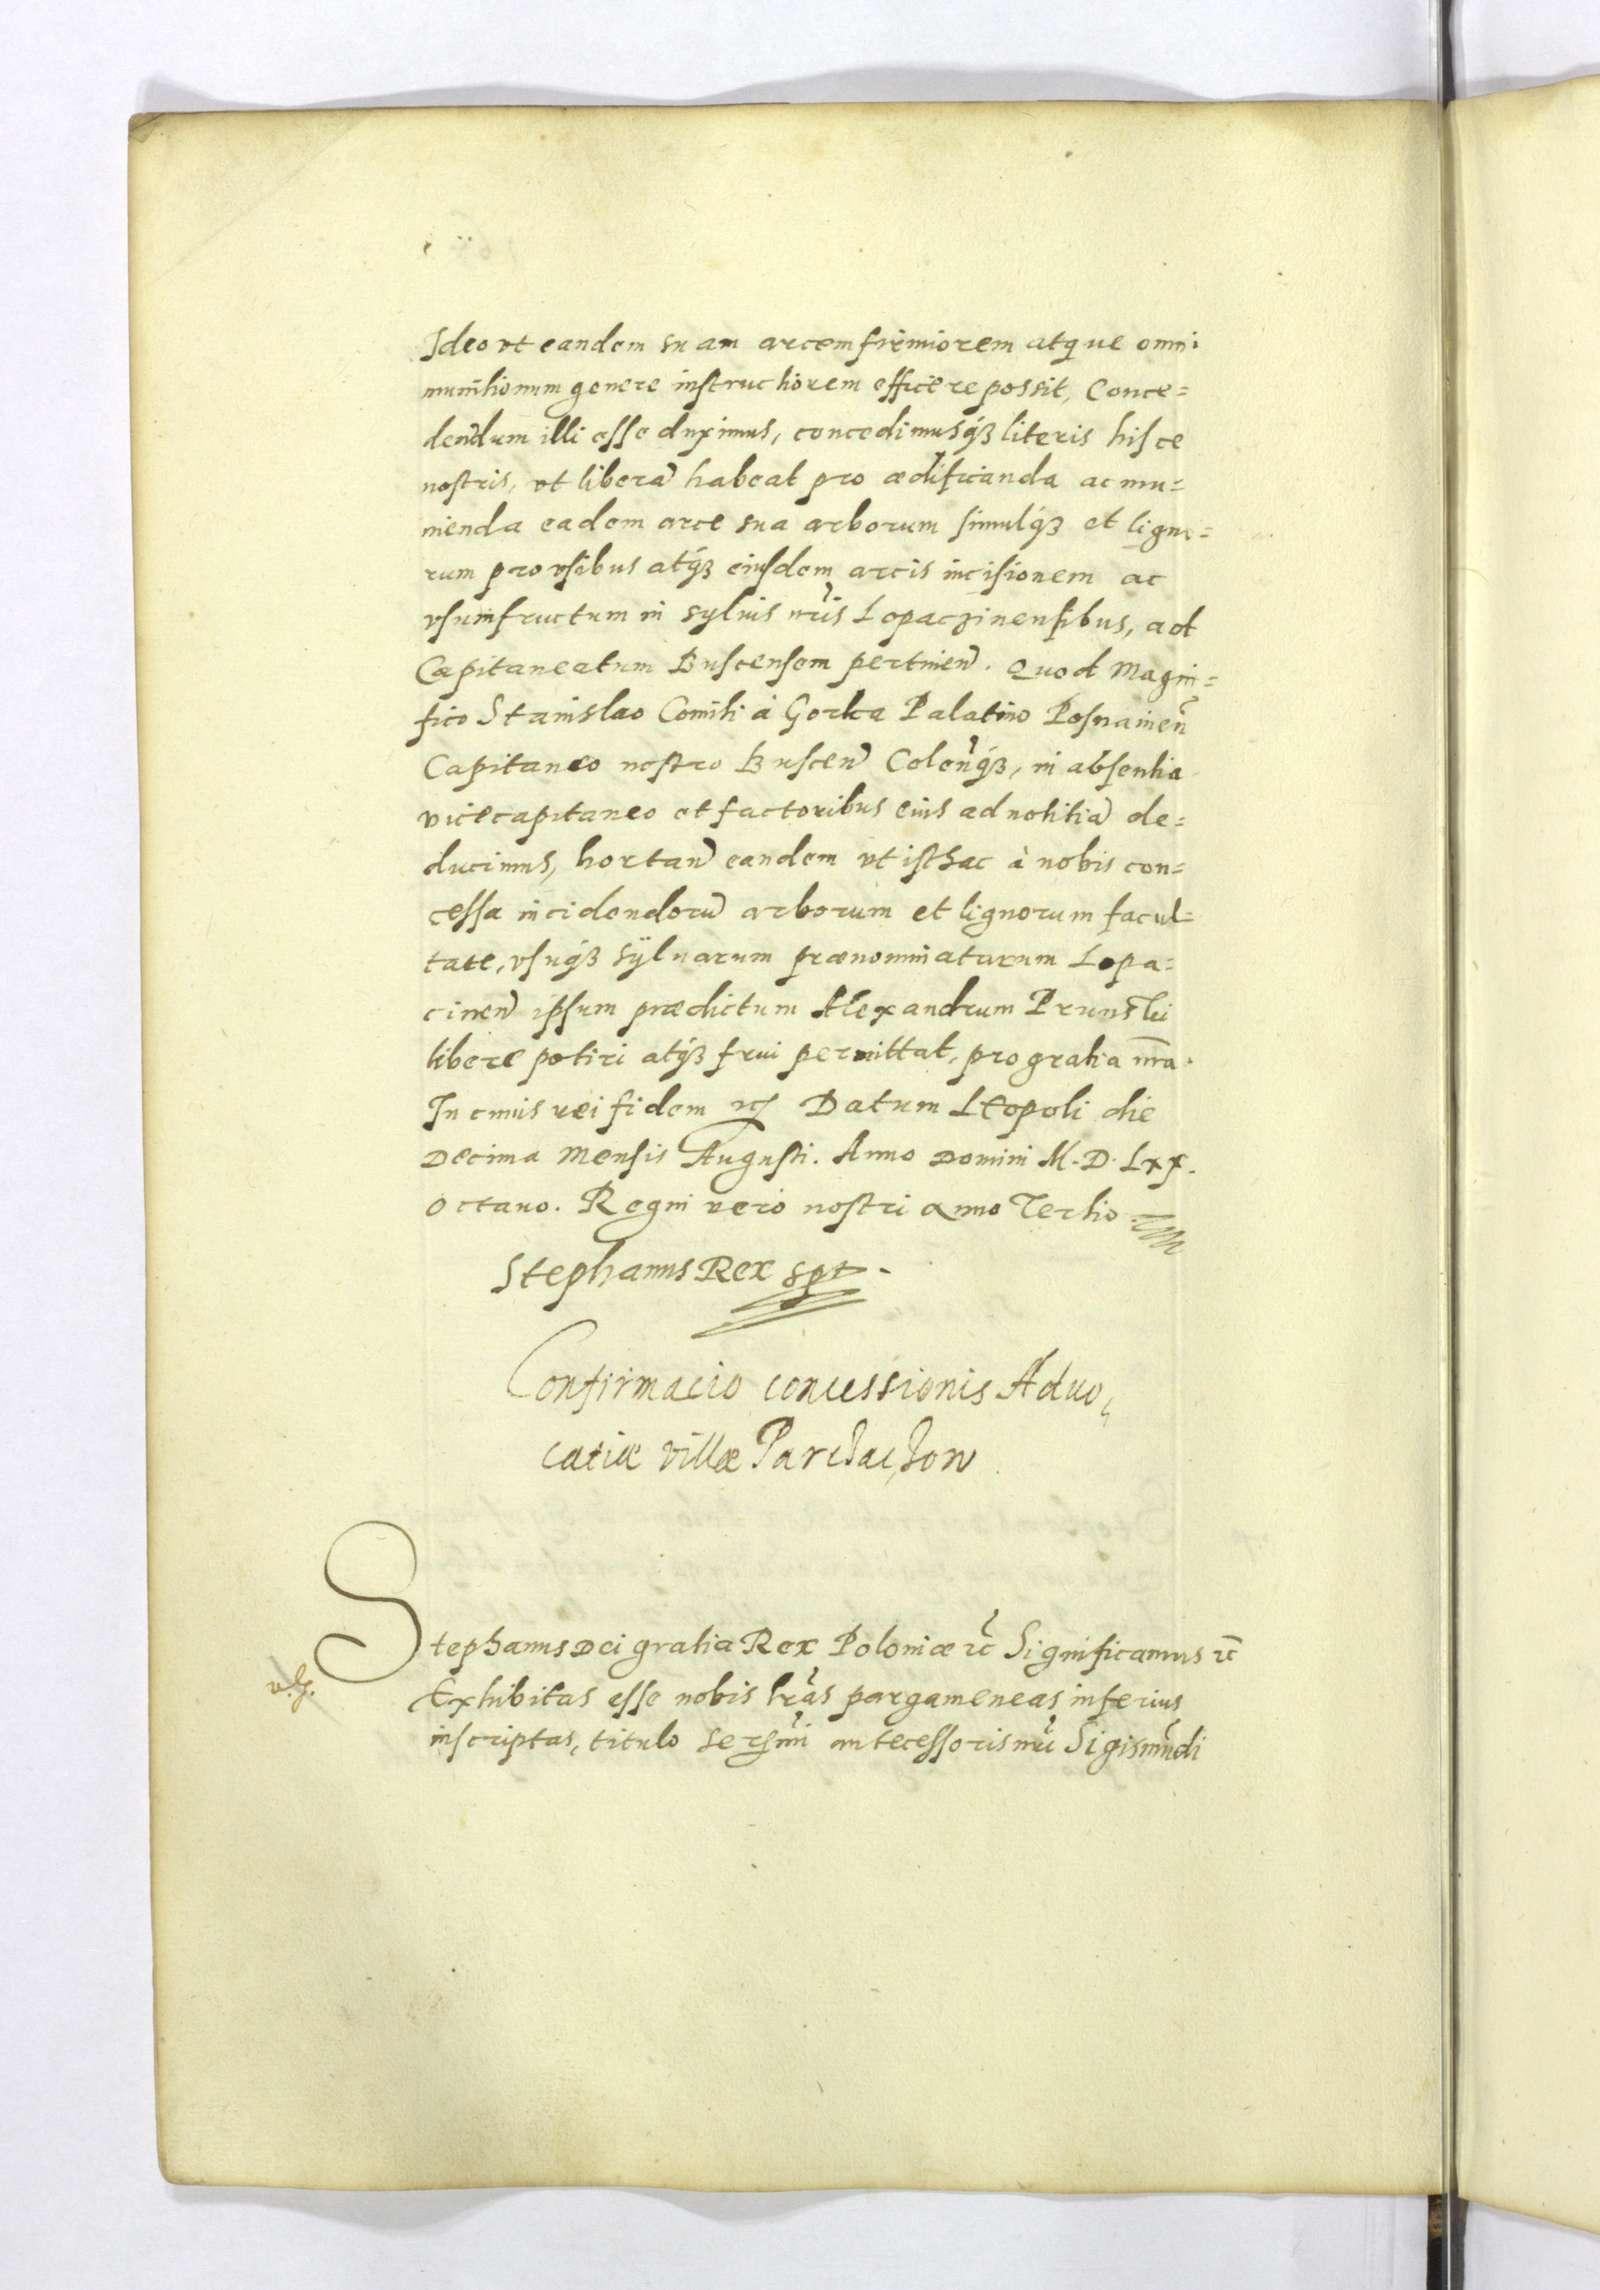 Ideo vt eandem suam arcem firmiorem atque omni
munitionum genere instructiorem efficere possit, Conce=
dendum illi esse duximus, concedimusqꝫ literis hisce
nostris, vt liberã habeat pro ædificanda ac mu=
nienda eadem arce sua arborum simulqꝫ et ligno=
rum pro vsibus atqꝫ eiusdem arcis incisionem ac
vsumfructum in syluis nris Lopaczinensibus, ad
Capitaneatum Buscensem pertinen. Quod Magni=
fico Stanislao Comiti à Gorka Palatino Posnanien
Capitaneo nostro Buscen Colenqꝫ, in absentia
vicecapitaneo et factoribus eius ad notitiã de=
ducimus, hortan eandem vt isthac à nobis con=
cessa incidendorũ arborum et lignorum facul=
tate, vsuqꝫ syluarum prænominatarum Lopa=
cinen ipsum prædictum Alexandrum Prunski
libere potiri atqꝫ frui permittat, pro gratia nra.
In cuius rei fidem etc Datum Leopoli die
Decima Mensis Augusti. Anno Domini M.D.Lxx.
Octauo. Regni vero nostri anno Tertio
Stephanus Rex spt.
Confirmacio concessionis Aduo,
catiæ villæ Parchaczow
Stephanus Dei gratia Rex Poloniæ etc Significamus etc
Exhibitas esse nobis lrãs pargameneas inferius
inscriptas, titulo sermi antecessoris nri Sigismũdi